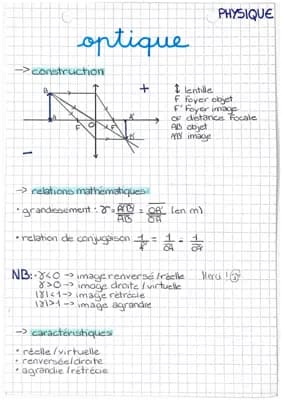 PHYSIQUE
optique
→ construction
B
+
↕ lentille
F foyer objet
F' foyer image
OF' distance focale
AB objet
A'B' image
A
F
O
F'
A'
B'
-
→ relations mathématiques
• grandissement : γ = A'B' / AB = OA' / OA (en m)
• relation de conjugaison 1/f' = 1/OA' - 1/OA
NB: • γ<0 → image renversé/réelle
γ>0 → image droite/virtuelle
|γ|<1 → image rétrécie
|γ|>1 → image agrandie
→ caractéristiques
• réelle/virtuelle
• renversée/droite
• agrandie/rétrécie